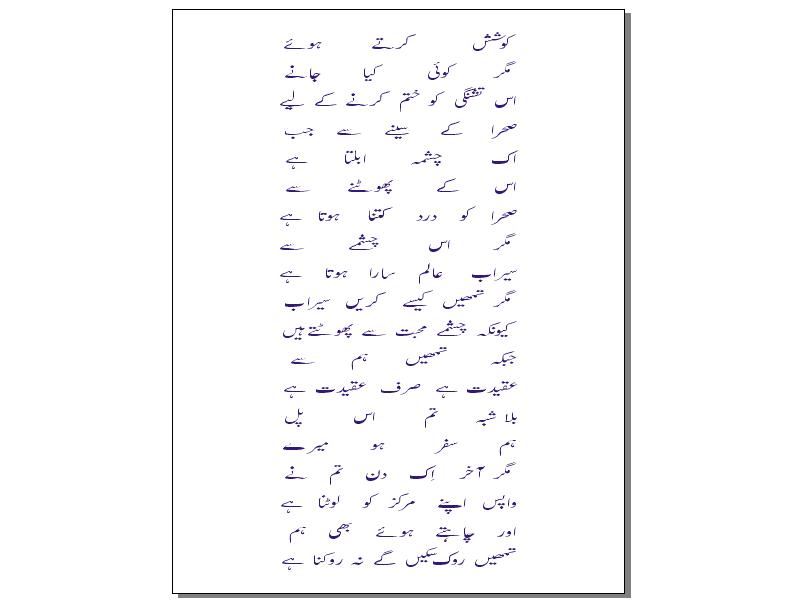 کوشش کرتے ہوئے
مگر کوئی کیا جانے
اس تشنگی کو ختم کرنے کے لیے
صحرا کے سینے سے جب
اک چشمہ ابلتا ہے
اس کے پھوٹنے سے
صحرا کو درد کتنا ہوتا ہے
مگر اس چشمے سے
سیراب عالم سارا ہوتا ہے
مگر تمھیں کیسے کریں سیراب
کیونکہ چشمے محبت سے پھوٹتے ہیں
جبکہ تمھیں ہم سے
عقیدت ہے صرف عقیدت ہے
بلا شبہ تم اس پل
ہم سفر ہو میرے
مگر آخر اِک دن تم نے
واپس اپنے مرکز کو لوٹنا ہے
اور چاہتے ہوئے بھی ہم
تمھیں روک سکیں گے نہ روکنا ہے